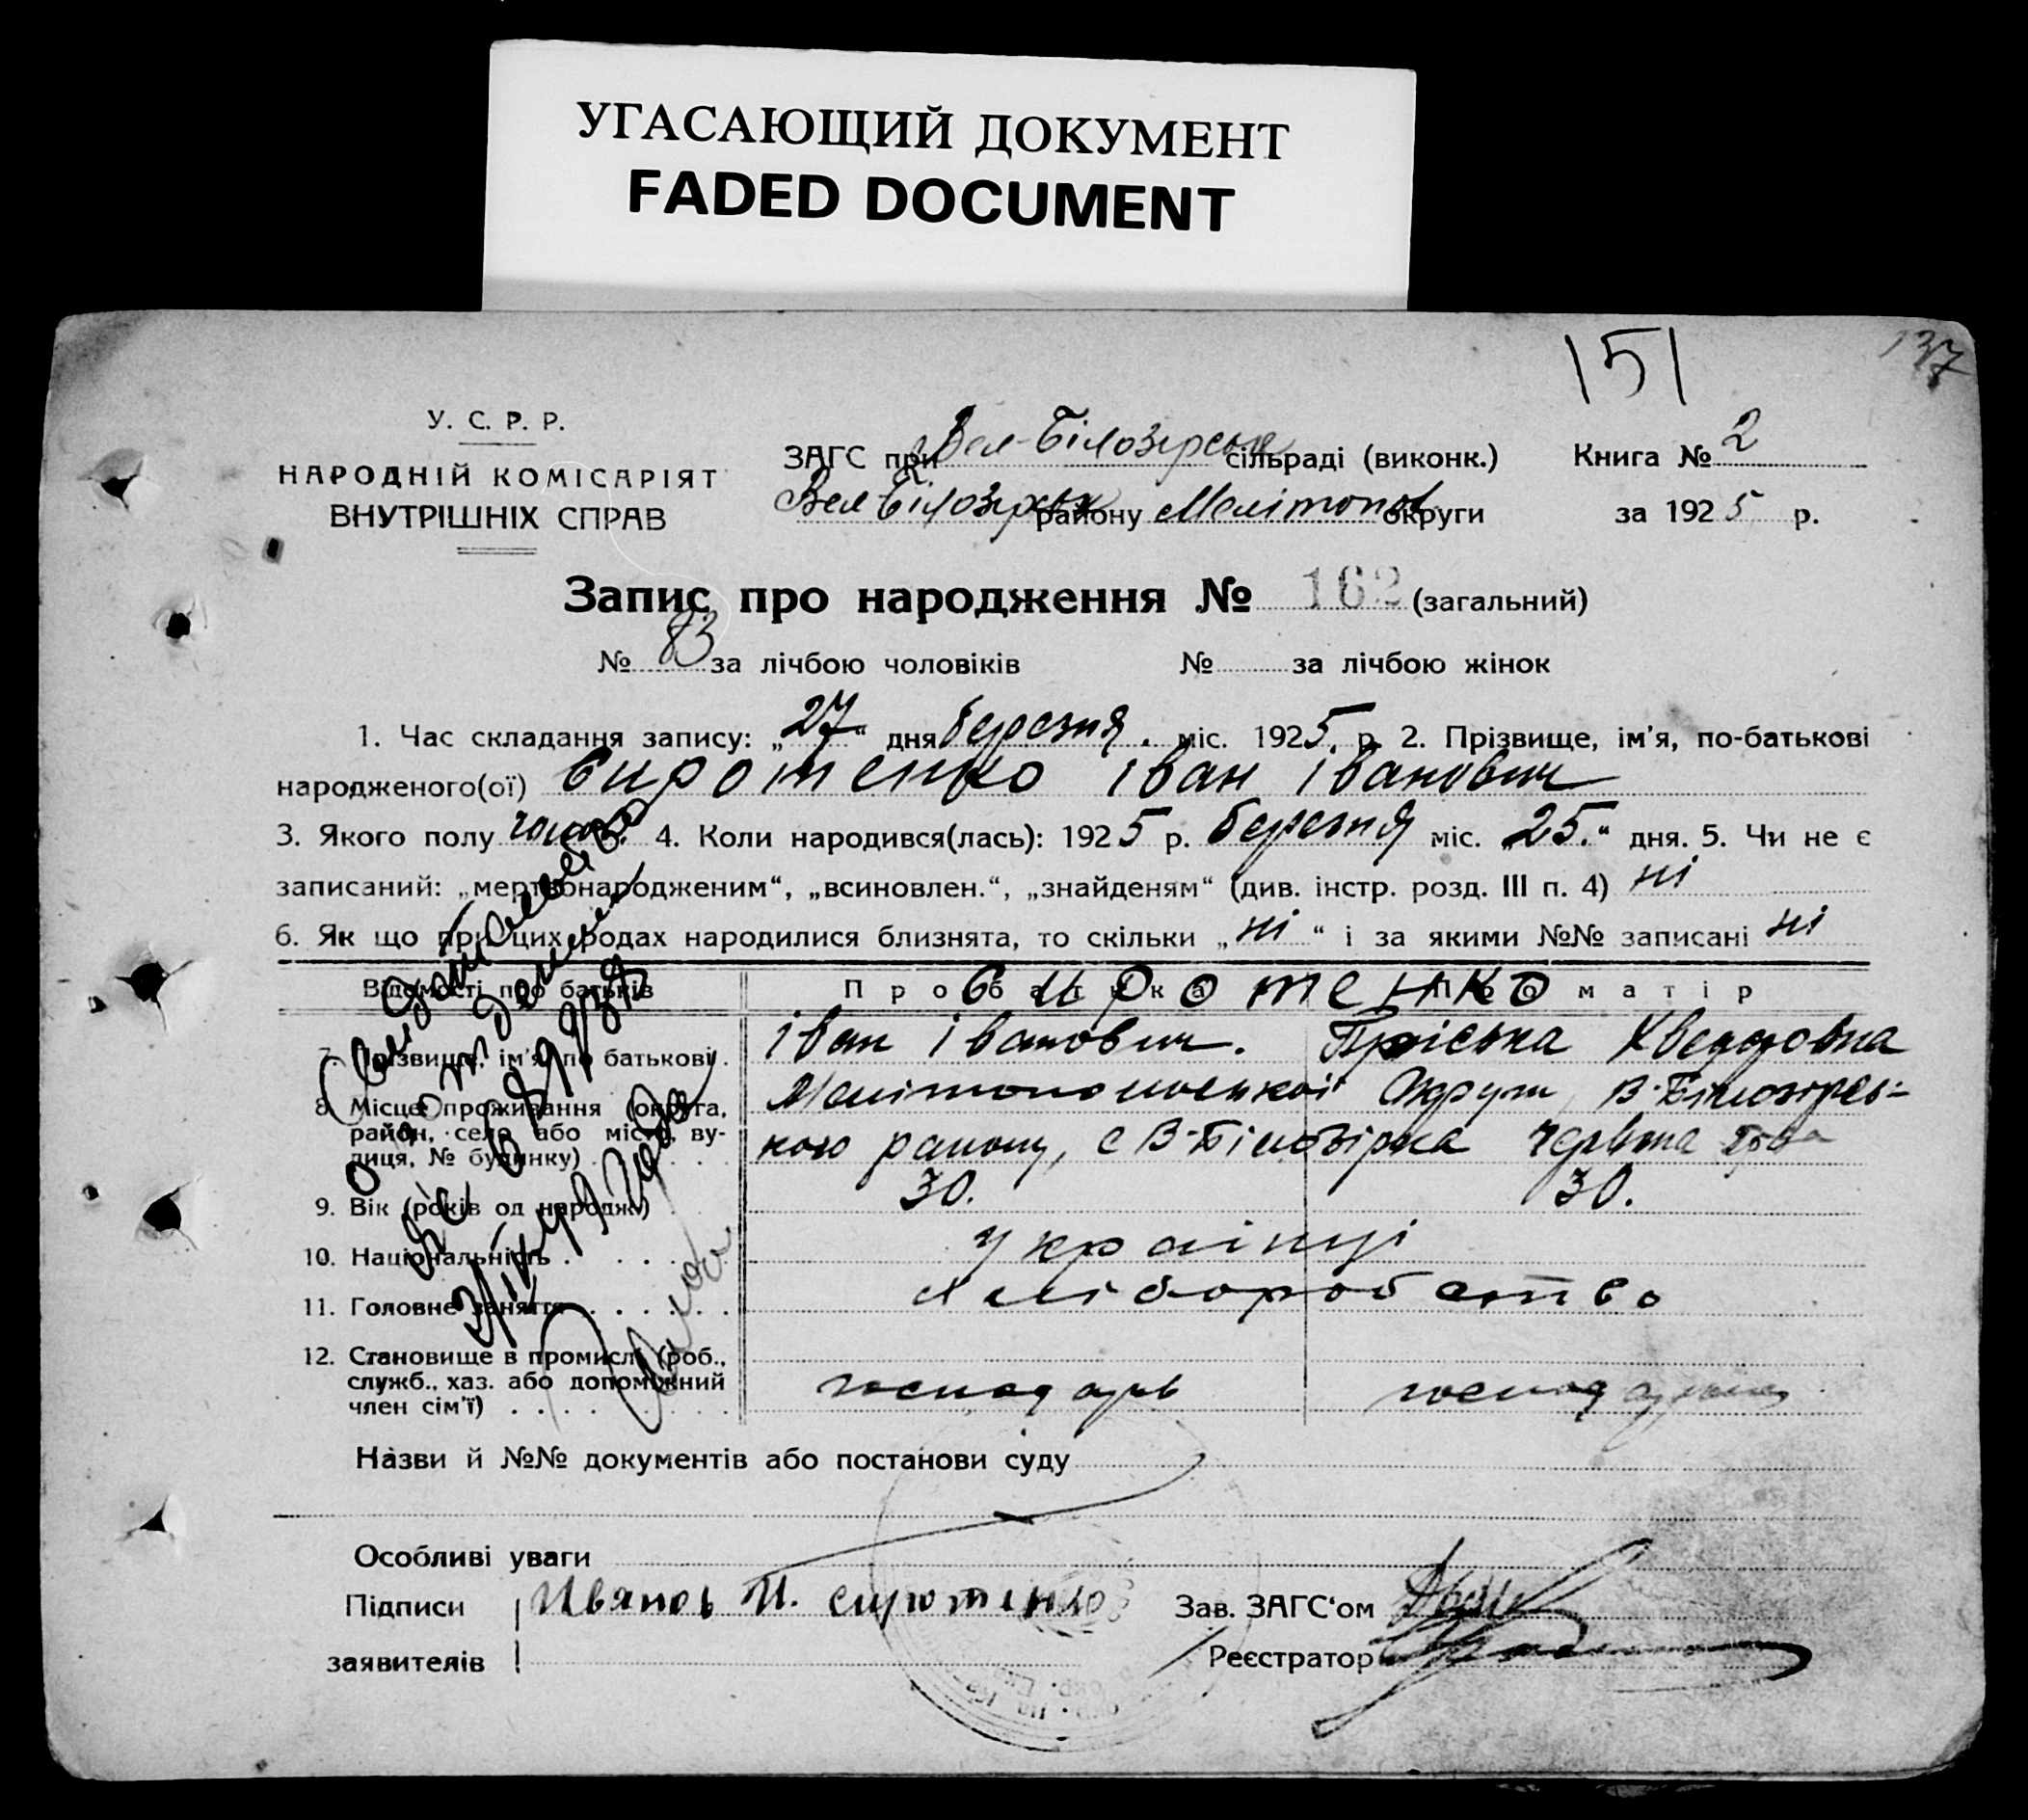 УГАСАЮЩИЙ ДОКУМЕНТ
FADED DOCUMENT
151
137
У. С. Р. Р.
НАРОДНІЙ КОМІСАРІЯТ
ВНУТРІШНІХ СПРАВ
ЗАГС при Вел-Білозірськ сільраді (виконк.)
Вел Білозірськ району Мелітопол округи
Книга № 2
за 1925 р.
Запис про народження № 162 (загальний)
№ 83 за лічбою чоловіків № за лічбою жінок
1. Час складання запису: „27“ дня березня міс. 1925 р. 2. Прізвище, ім'я, по-батькові
народженого(ої) Сиротенко Іван Іванович
3. Якого полу чолов. 4. Коли народився(лась): 1925 р. березня міс. „25.“ дня. 5. Чи не є
записаний: „мертвонародженим“, „всиновлен.“, „знайденям“ (див. інстр. розд. III п. 4) ні
6. Як що при цих родах народилися близнята, то скільки „ні“ і за якими №№ записані ні
Відомості про батьків Про батька Про матір
Сиротенко
7. Прізвище, ім'я, по батькові Іван Іванович. Пріська Хведоровна
8. Місце проживання (округа, Мелітопольської Округи, В-Білозірсь-
район, село або місто, ву- кого району, с В-Білозірка Червона
лиця, № будинку)
9. Вік (років од народж.) 30. 30.
10. Національність Українці
11. Головне заняття хліборобство
12. Становище в промислі (роб.,
служб., хаз. або допоміжний господарь
член сім'ї)
Назви й №№ документів або постанови суду
Особливі уваги
Підписи Иванов И. сиротенко Зав. ЗАГС'ом
заявителів Реєстратор